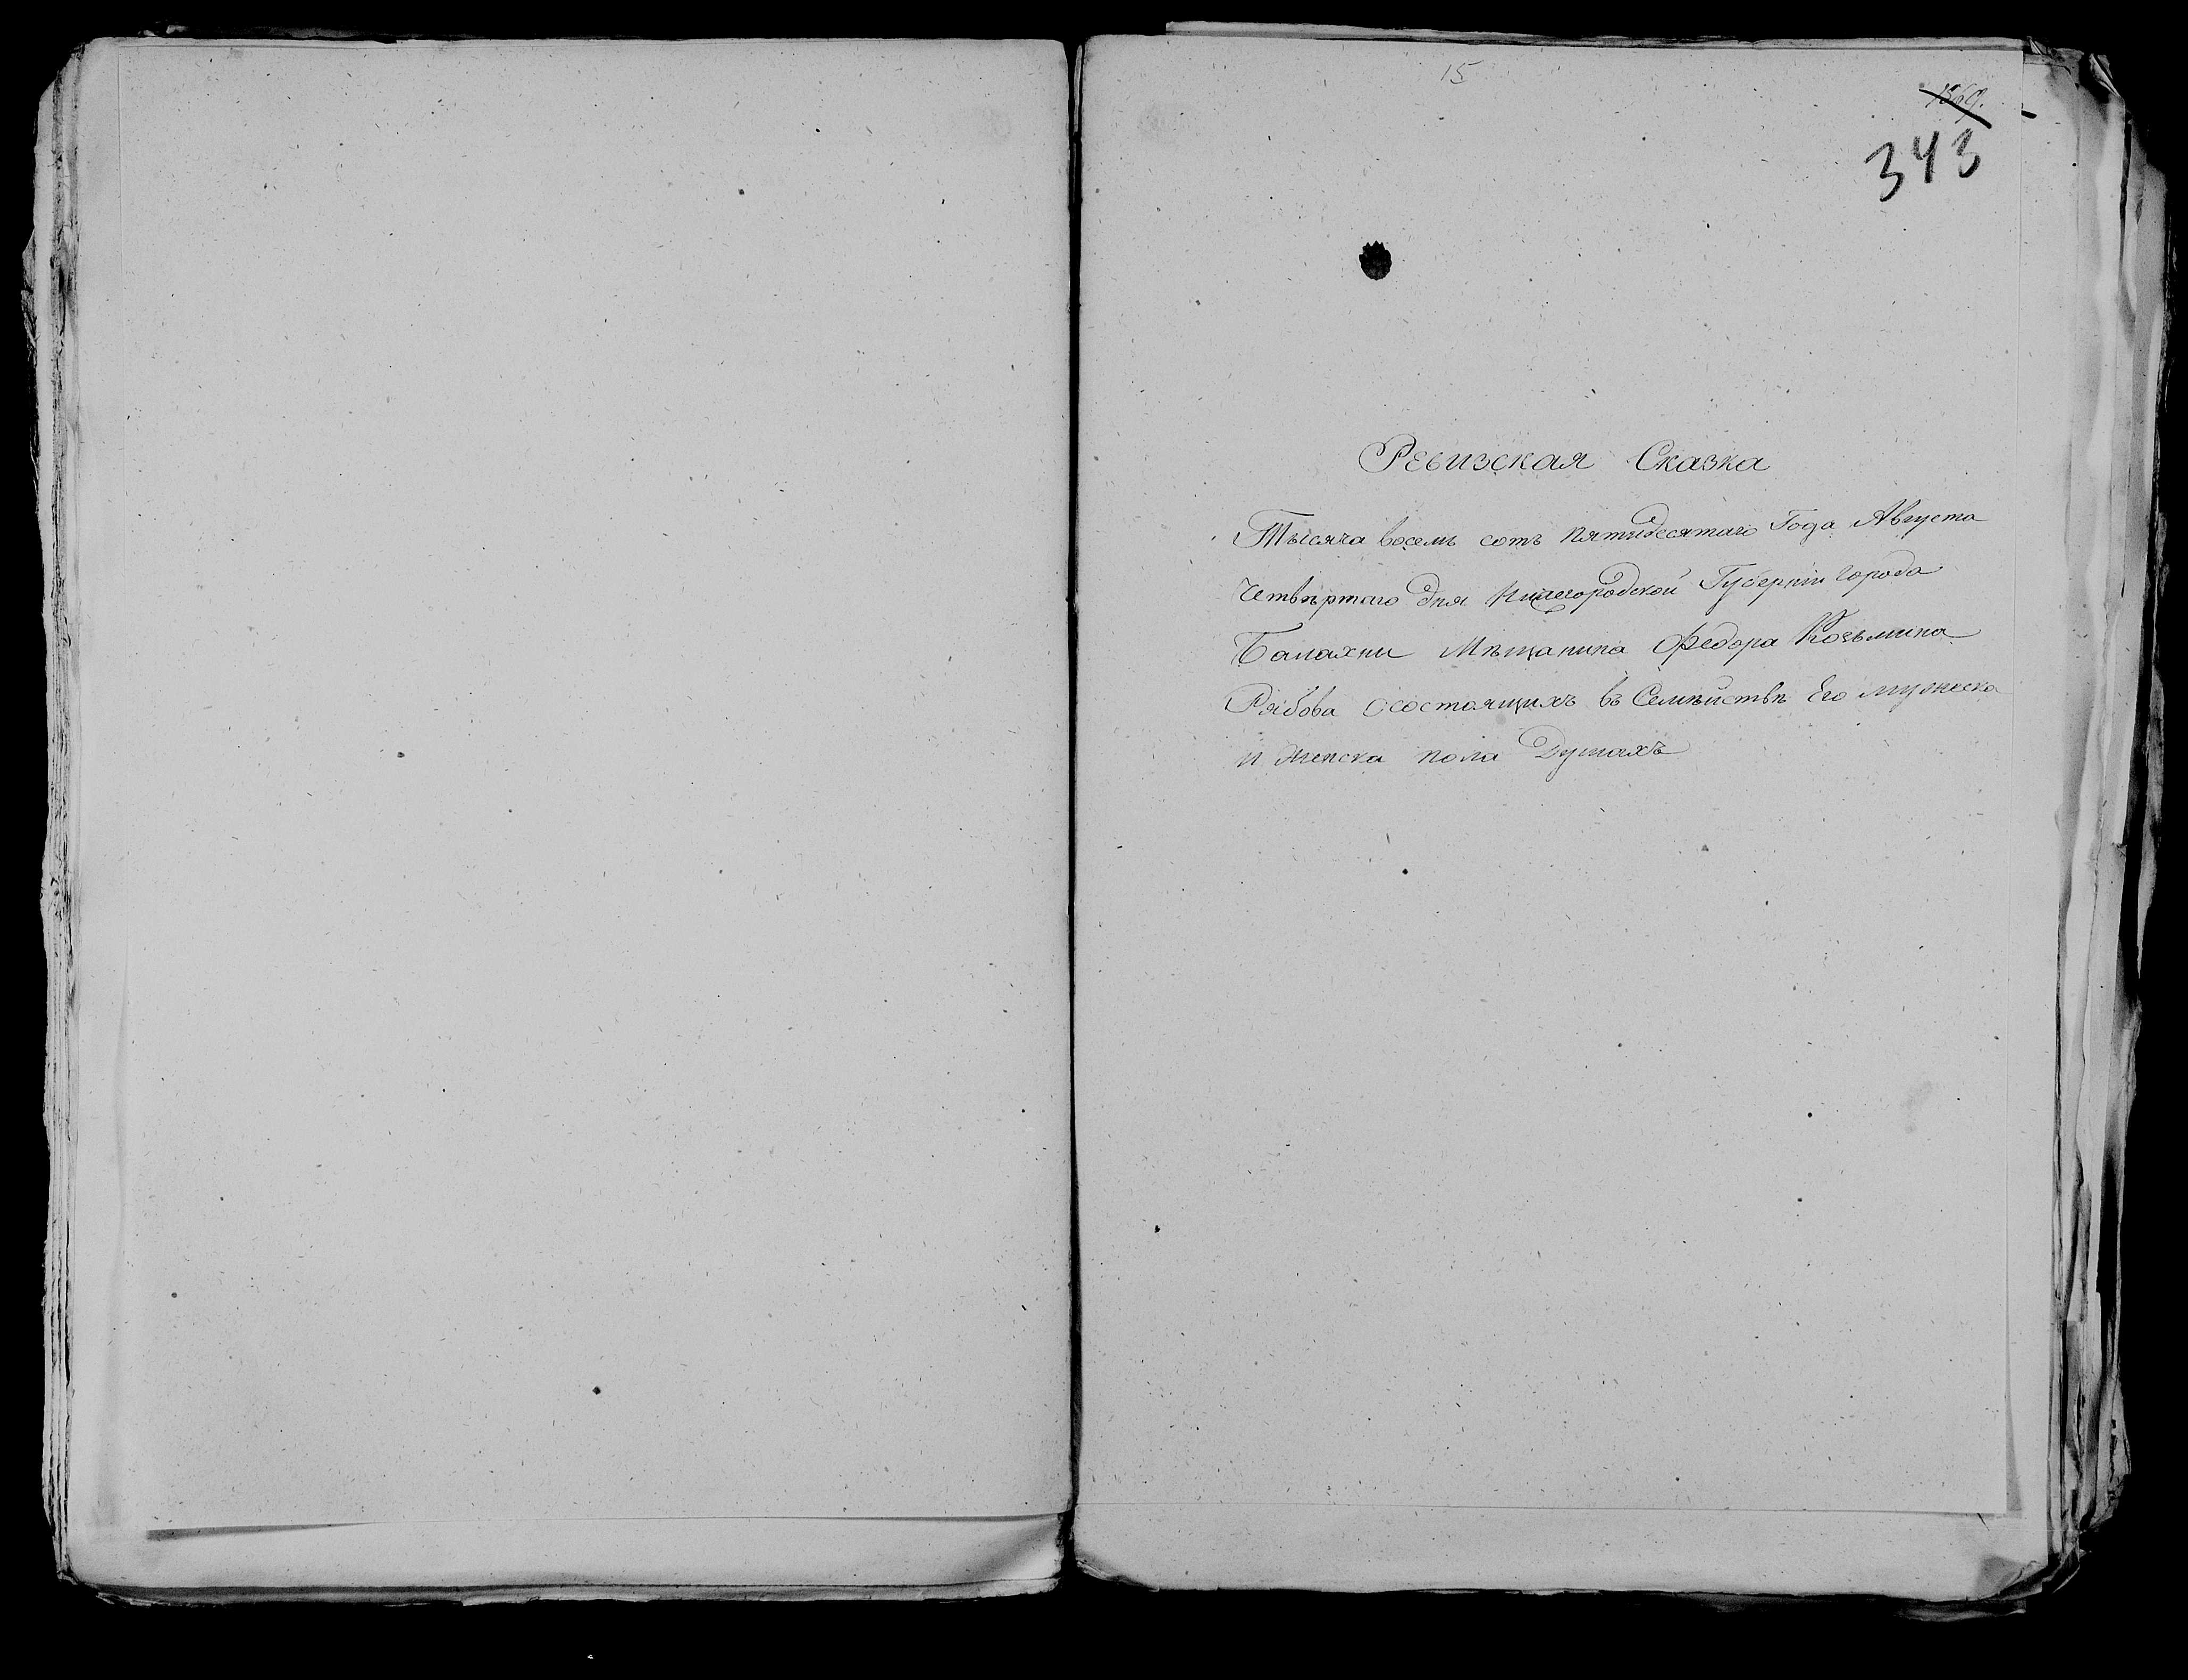 15
343
Ревизская Сказка
Тысяча восемь сотъ пятидесятаго Года Августа
Четвѣртаго дня Нижегородской Губерніи города
Балахни Мѣщанина Федора Козьмина
Рябова осостоящихъ въ Семѣйствѣ Его мужеска
и женска пола Душахъ